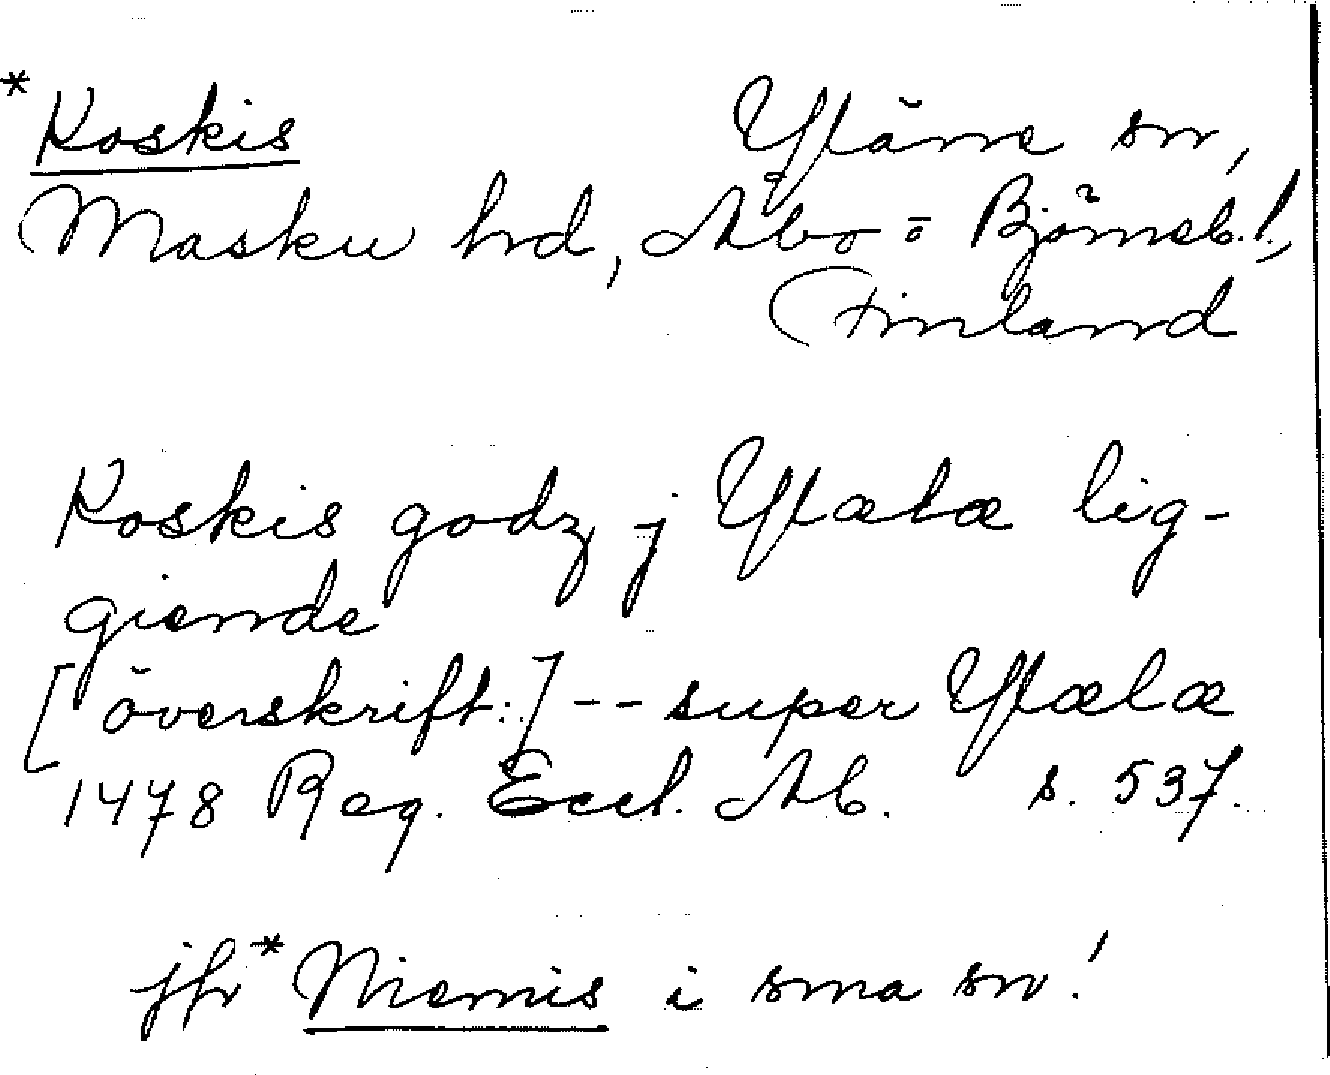 *Koskis Yläne sn,
Masku hd, Åbo = Björneb. l.,
Finland
Koskis godz j Ylælæ lig-
giende
[överskrift:] -- super Ylælæ
1478 Reg. Eccl. Ab. s. 537.
jfr *Niemis i sma sn!